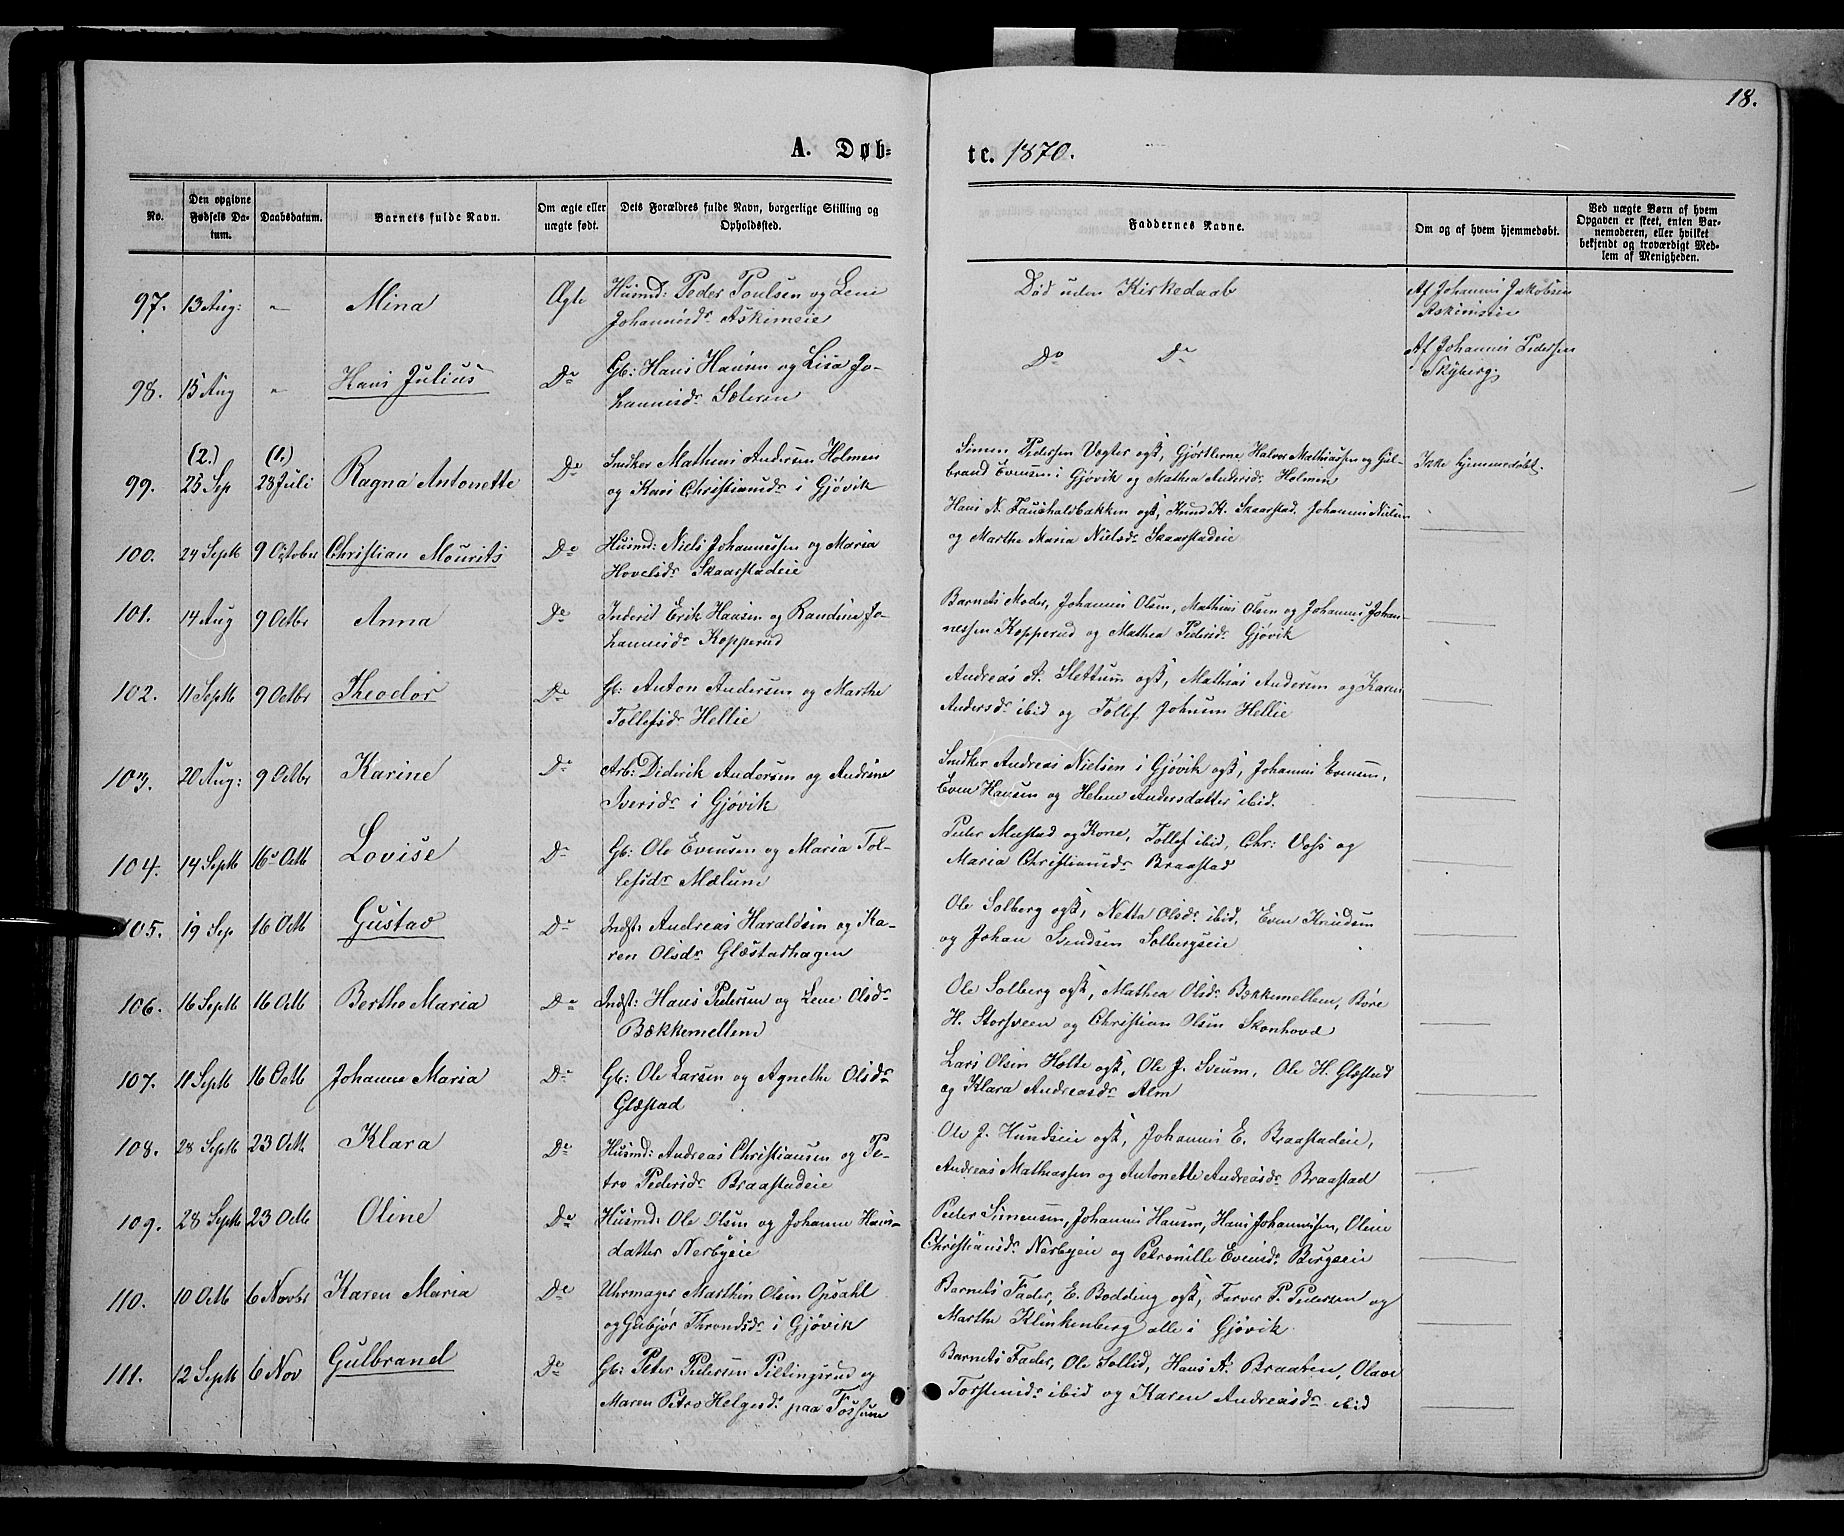 18.
A. Døb-
te. 1870.
No.
Den opgivne Fødsels Da-tum.
Daabsdatum.
Barnets fulde Navn.
Om ægte eller uægte født.
Dets Forældres fulde Navn, borgerlige Stilling og Opholdssted.
Faddernes Navne.
Om og af hvem hjemmedøbt.
Ved uægte Børn af hvem Opgaven er skeet, enten Bar-nemoderen, eller hvilket bekjendt og troværdigt Med-lem af Menigheden.
97. 13 Aug: " Mina Ægte Husmd: Peder Poulsen og Lene
Johannisdr Askimeie
Død uden Kirkedaab
Af Johannes Jakobsen
Askimeie
98. 15 Aug " Hans Julius Do Gb: Hans Hansen og Lisa Jo-
hannisdr Sæteren
Do Do
Af Johannes Pedersen
Skyberg.
(2.) (1.)
99. 25 Sep 28 Juli Ragna Antonette Do Sndker Mathias Andersen Holmen
og Kari Christiansdr i Gjøvik
Simen Pedersen Vegter ogst, Gjørtlerne Halvor Mathiassen og Gul-
brand Evensen i Gjøvik og Mathea Andersdr Holmen
Ikke hjemmedøbt.
100. 24 Septb 9 October Christian Mourits Do Husmd: Niels Johannessen og Maria
Hovelsdr Skaarstadeie
Hans N. Faushaldbakken ogst, Knud K. Skaarstad. Johannes Nielsen
og Marthe Maria Nielsdr Skaarstadeie
101. 14 Aug 9 Octbr Anna Do Inderst Erik Hansen og Randine Jo-
hannisdr Kopperud
Barnets Moder, Johannes Olsen, Mathias Olsen og Johannes Johan-
nessen Kopperud og Mathea Pedersdr Gjøvik
102. 11 Septb 9 Octbr Theodor Do Gb: Anton Andersen og Marthe
Tollefsdr Hellie
Andreas A. Slettum ogst, Mathias Andersen og Karen
Andersdr ibid og Tollef Johnsen Hellie
103. 20 Aug: 9 Octbr Karine Do Arb: Diderik Andersen og Andrine
Iversdr i Gjøvik
Sndker Andreas Nielsen i Gjøvik ogst, Johannes Evensen,
Even Hansen og Helene Andersdatter ibid.
104. 14 Septb 16 Octb Lovise Do Gb: Ole Evensen og Maria Tol-
lefsdr Mælum
Peder Mustad og Kone, Tollef ibid, Chr: Voss og
Maria Christiansdr Braastad
105. 19 Sep 16 Octb Gustav Do Indst: Andreas Haraldsen og Ka-
ren Olsdr Glæstadhagen
Ole Solberg ogst, Netta Olsdr ibid, Even Knudsen
og Johan Svendsen Solbergseie
106. 16 Septb 16 Octb Berthe Maria Do Indst: Hans Pedersen og Lene Olsdr
Bækkemellem
Ole Solberg ogst, Mathea Olsdr Bækkemellem, Bore
H. Storsveen og Christian Olsen Skonhovd
107. 11 Septb 16 Octb Johanne Maria Do Gb: Ole Larsen og Agnethe Olsdr
Glæstad
Lars Olsen Holte ogst, Ole J. Sveum, Ole H. Glæstad
og Klara Andreasdr Alm
108. 28 Septb 23 Octb Klara Do Husmd: Andreas Christiansen og Pe-
tra Pedersdr Braastadeie
Ole J. Hundseie ogst, Johannes E. Braastadeie,
Andreas Mathiassen og Antonette Andreasdr Braastad
109. 28 Septb 23 Octb Oline Do Husmd: Ole Olsen og Johanne Hans-
datter Nerbyeie
Peder Simensen, Johannes Hansen, Hans Johannessen, Oline
Christiansdr Nerbyeie og Petronille Evensdr Bergseie
110. 10 Octb 6 Novbr Karen Maria Do Uhrmager Marthin Olsen Opsahl
og Gubjør Throndsdr i Gjøvik
Barnets Fader, E. Bødding ogst, Farver P. Pedersen og
Marthe Klinkenberg alle i Gjøvik
111. 12 Septb 6 Nov Gulbrand Do Gb: Peter Pedersen Piltingsrud og
Maren Petra Helgesdr paa Fossum
Barnets Fader, Ole Sollid, Hans A. Braaten, Olave
Torstensdr ibid og Karen Andreasdr ibid